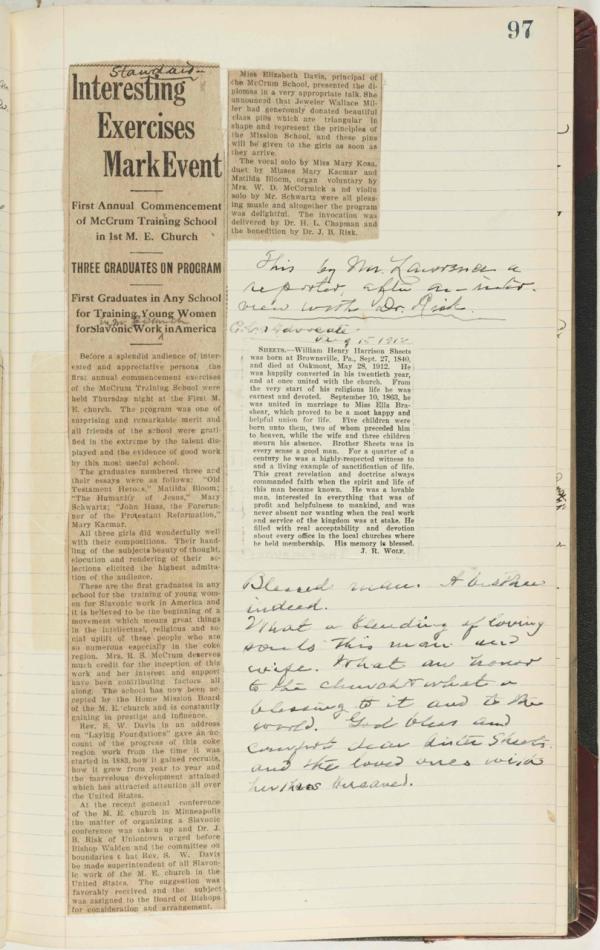 97
Standard
Interesting
Exercises
Mark Event
First Annual Commencement
of McCrum Training School
in 1st M. E. Church
THREE GRADUATES ON PROGRAM
First Graduates in Any School
for Training Young Women
for Slavonic Work in America
Before a splendid audience of inter-
ested and appreciative persons the
first annual commencement exercises
of the McCrum Training School were
held Thursday night at the First M.
E. church. The program was one of
surprising and remarkable merit and
all friends of the school were grati-
fied in the extreme by the talent dis-
played and the evidence of good work
by this most useful school.
The graduates numbered three and
their essays were as follows: "Old
Testament Heroes," Matilda Bloom;
"The Humanity of Jesus," Mary
Schwartz; "John Huss, the Forerun-
ner of the Protestant Reformation,"
Mary Kacmar.
All three girls did wonderfully well
with their compositions. Their hand-
ling of the subjects beauty of thought,
elocution and rendering of their se-
lections elicited the highest admira-
tion of the audience.
These are the first graduates in any
school for the training of young wom-
en for Slavonic work in America and
it is believed to be the beginning of a
movement which means great things
in the intellectual, religious and so-
cial uplift of these people who are
so numerous especially in the coke
region. Mrs. R. S. McCrum deserves
much credit for the inception of this
work and her interest and support
have been contributing factors all
along. The school has now been ac-
cepted by the Home Mission Board
of the M. E. church and is constantly
gaining in prestige and influence.
Rev. S. W. Davis in an address
on "Laying Foundations" gave an ac-
count of the progress of this coke
region work from the time it was
started in 1883, how it gained recruits,
how it grew from year to year and
the marvelous development attained
which has attracted attention all over
the United States.
At the recent general conference
of the M. E. church in Minneapolis
the matter of organizing a Slavonic
conference was taken up and Dr. J.
B. Risk of Uniontown urged before
Bishop Walden and the committee on
boundaries that Rev. S. W. Davis
be made superintendent of all Slavon-
ic work of the M. E. church in the
United States. The suggestion was
favorably received and the subject
was assigned to the Board of Bishops
for consideration and arrangement.
Miss Elizabeth Davis, principal of
the McCrum School, presented the di-
plomas in a very appropriate talk. She
announced that Jeweler Wallace Mil-
ler had generously donated beautiful
class pins which are triangular in
shape and represent the principles of
the Mission School, and these pins
will be given to the girls as soon as
they arrive.
The vocal solo by Miss Mary Kosa,
duet by Misses Mary Kacmar and
Matilda Bloom, organ voluntary by
Mrs. W. D. McCormick a nd violin
solo by Mr. Schwartz were all pleas-
ing music and altogether the program
was delightful. The invocation was
delivered by Dr. H. L. Chapman and
the benedition by Dr. J. B. Risk.
This by Mr. Lawrence a
reporter, after an inter-
view with Dr. Risk.
Advocate
15 1912
SHEETS.—William Henry Harrison Sheets
was born at Brownsville, Pa., Sept. 27, 1840,
and died at Oakmont, May 28, 1912. He
was happily converted in his twentieth year,
and at once united with the church. From
the very start of his religious life he was
earnest and devoted. September 10, 1863, he
was united in marriage to Miss Ella Bra-
shear, which proved to be a most happy and
helpful union for life. Five children were
born unto them, two of whom preceded him
to heaven, while the wife and three children
mourn his absence. Brother Sheets was in
every sense a good man. For a quarter of a
century he was a highly-respected witness to
and a living example of sanctification of life.
This great revelation and doctrine always
commanded faith when the spirit and life of
this man became known. He was a lovable
man, interested in everything that was of
profit and helpfulness to mankind, and was
never absent nor wanting when the real work
and service of the kingdom was at stake. He
filled with real acceptability and devotion
about every office in the local churches where
he held membership. His memory is blessed.
J. R. WOLF.
Blessed man. A brother
indeed.
What a blending of loving
souls this man and
wife. What an honor
to the church & what a
blessing to it and to the
world. God bless and
comfort dear sister Sheets
and the loved ones with
her thus bereaved.